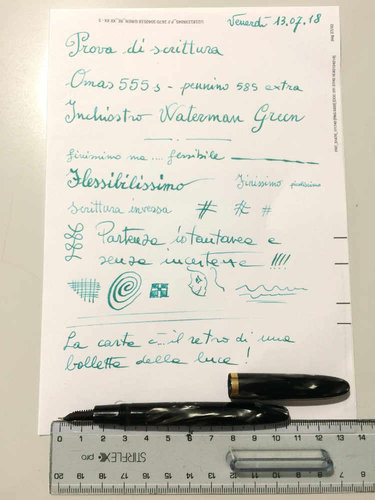 Venerdì 13.07.18
Prova di scrittura
Omas 555 s - pennino 585 extra
Inchiostro Waterman Green
finissimo ma .... flessibile
Flessibilissimo
Finissimo finissimo
scrittura inversa # # #
Partenza istantanea e
senza incertezze !!!!
La carta è... il retro di una
bolletta della luce !
0 1 2 3 4 5 6 7 8 9 10 11 12 13 14
STIRFLEX pro
20 19 18 17 16 15 14 13 12 11 10 9 8 7 6